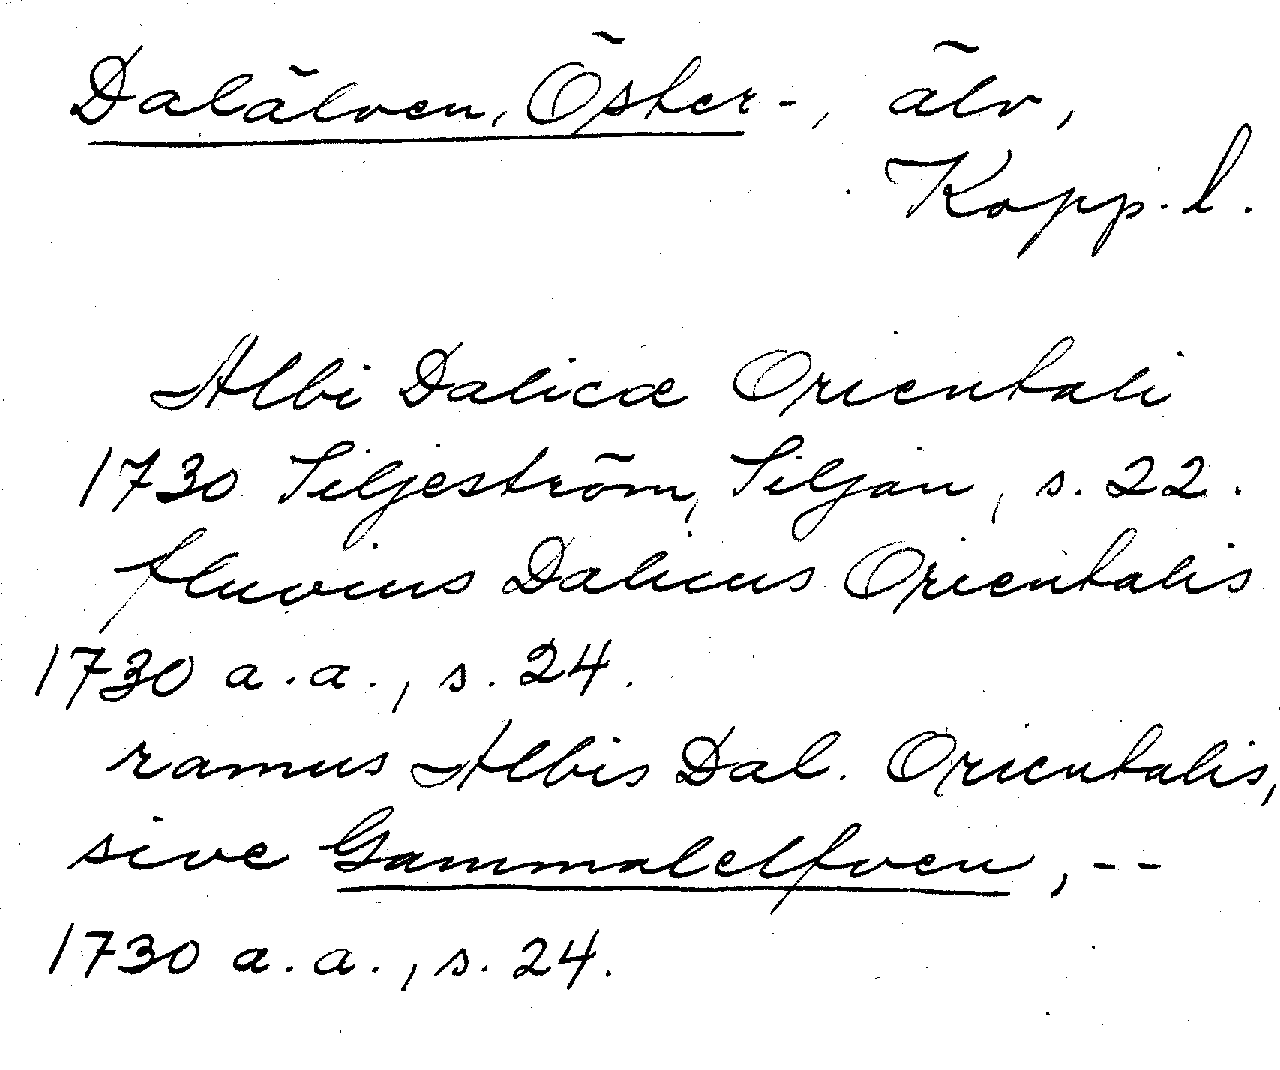 Dalälven, Öster-, älv,
Kopp. l.
Albi Dalicæ Orientali
1730 Siljeström, Siljan, s. 22.
fluvius Dalicus Orientalis
1730 a.a., s. 24.
ramus Albis Dal. Orientalis,
sive Gammalelfven, --
1730 a.a., s. 24.